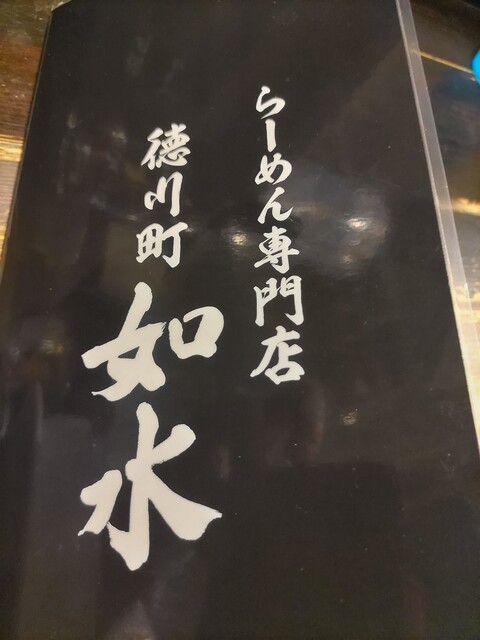 らーめん専門店
徳川町
如水